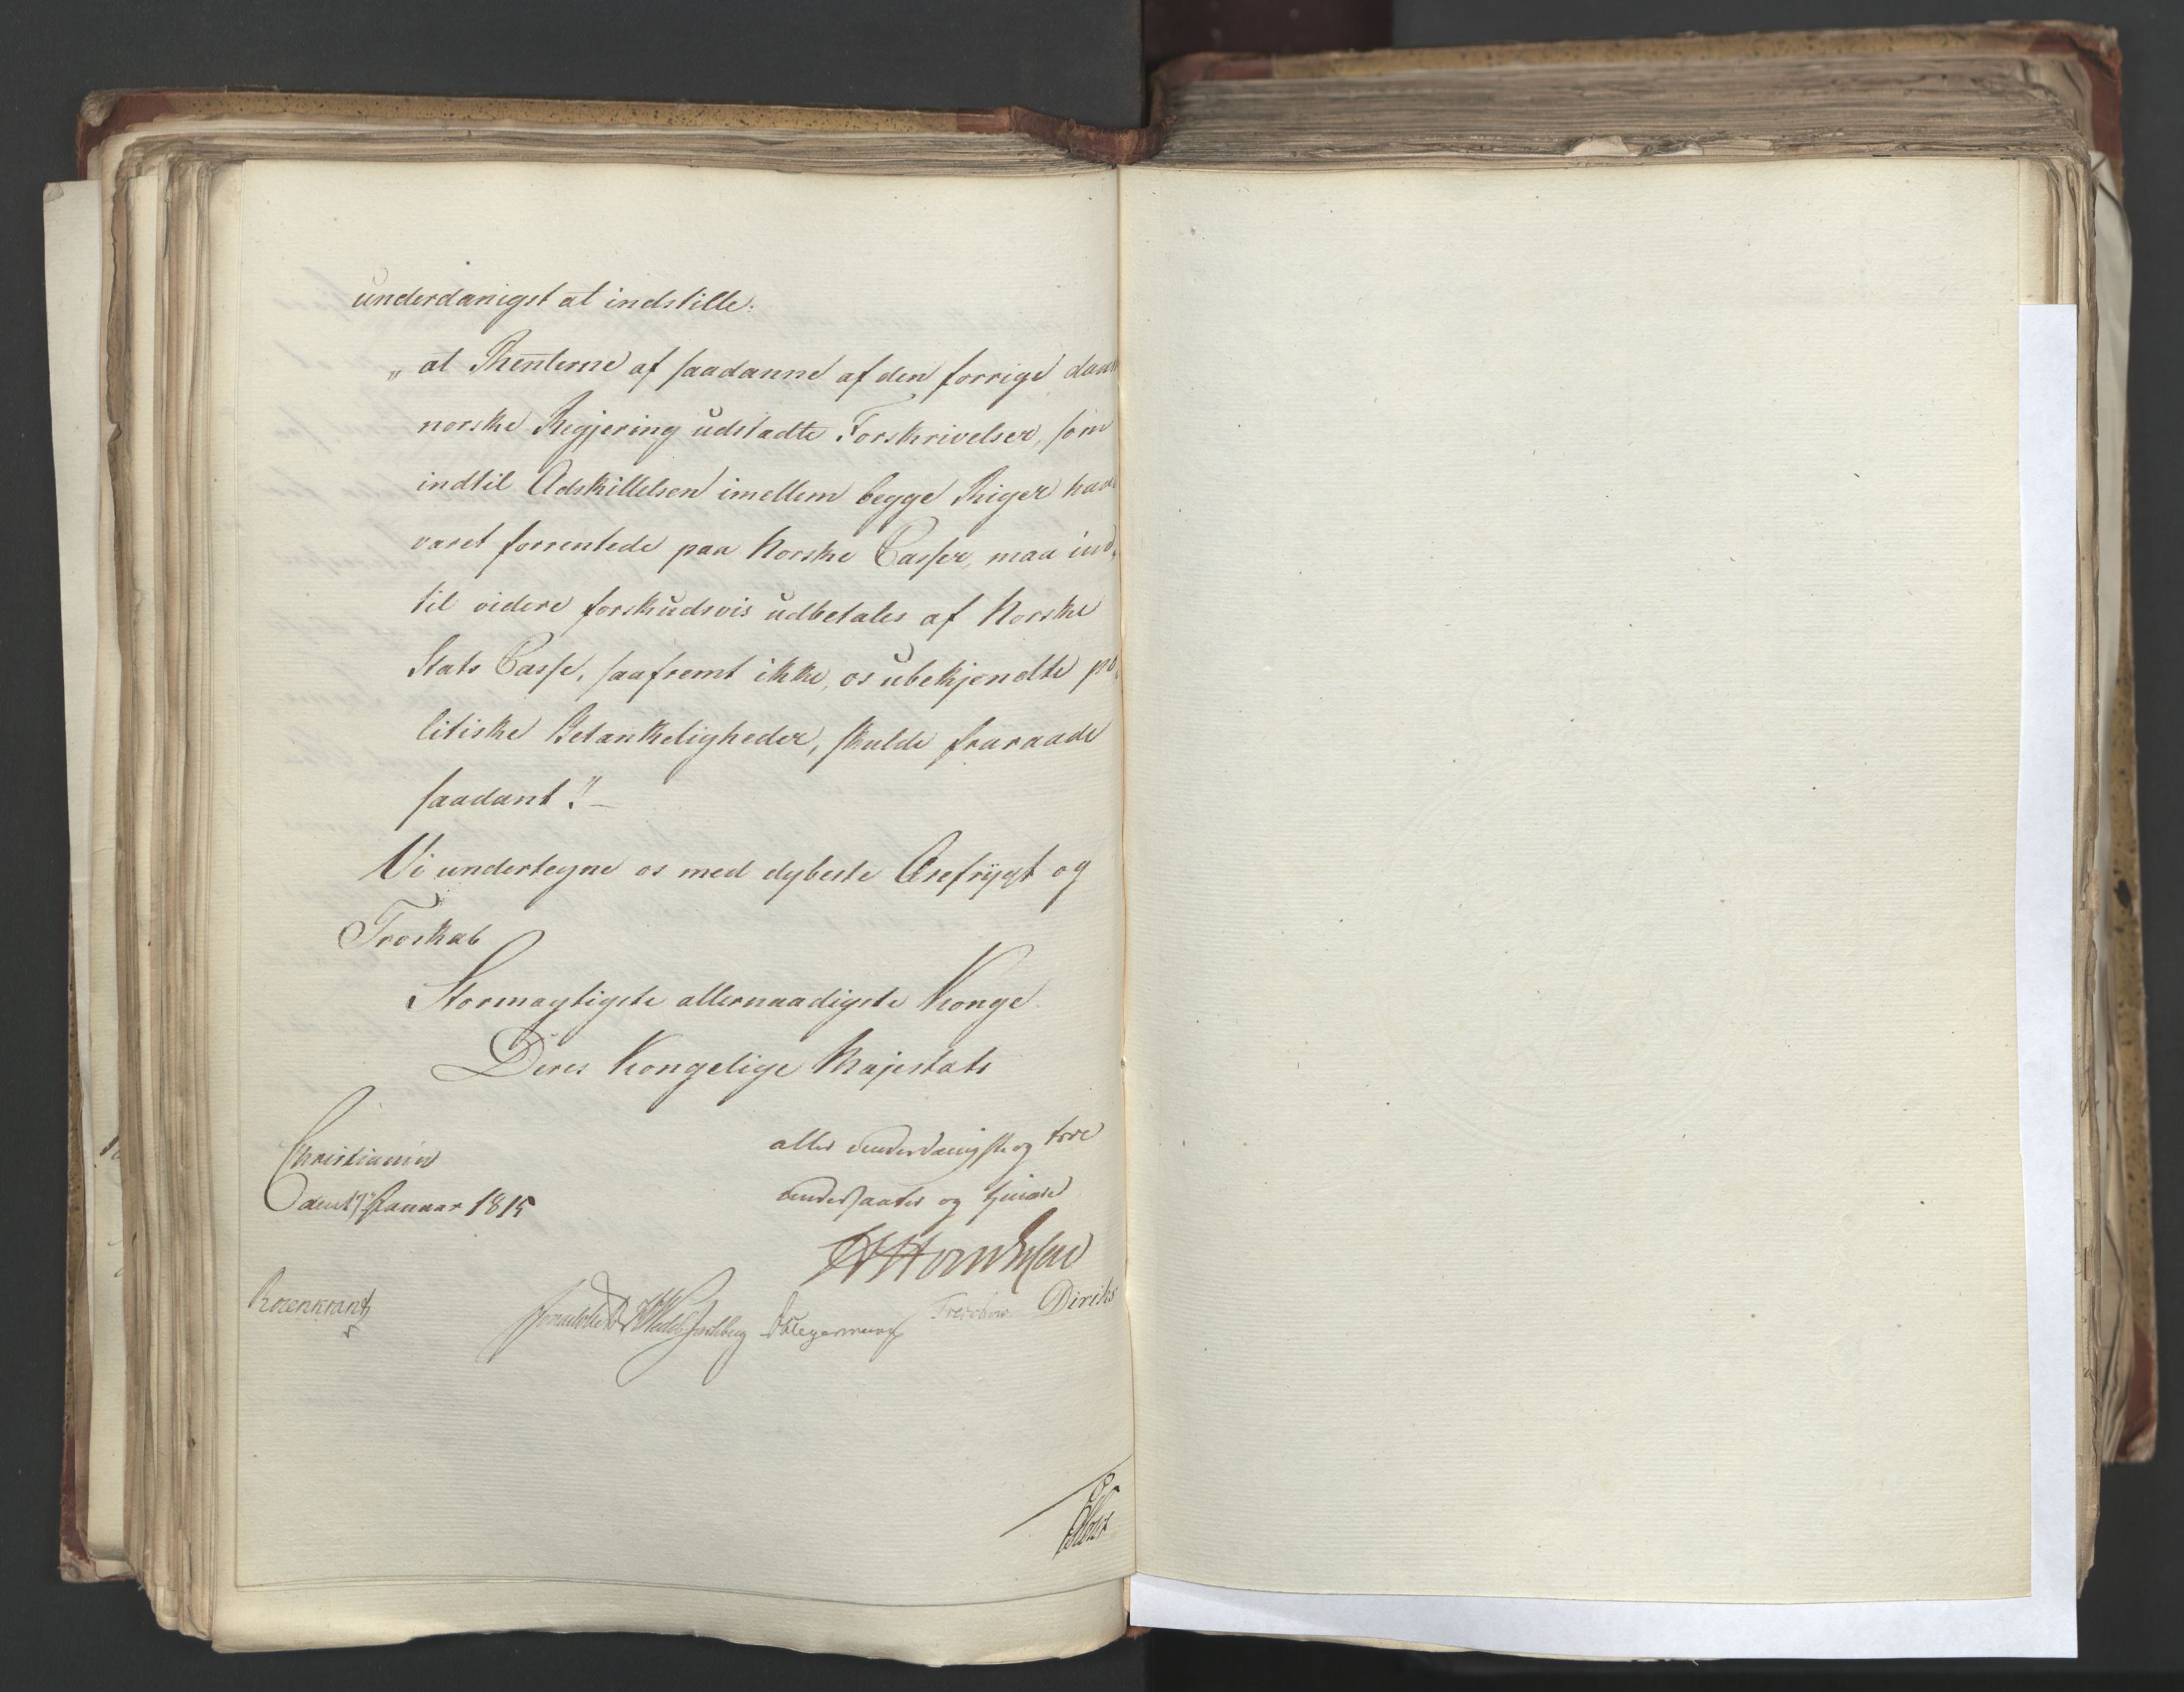 underdanigst at indstille:
„at Renterne af saadanne af den forrige dansk
norske Regjering udstadte Forskrivelser, som
indtil Adskillelsen imellem begge Riger have
varet forrentede paa Norske Casser, maa ind-
til videre forskudsvis udbetales af Norske
Stats Casse, saafremt ikke, os ubekjendte po-
litiske Betankeligheder, skulde fraraade
saadant."–
Vi undertegne os med dybeste Arefrygt og
Troskab
Stormagtigste allernaadigste Konge
Deres Kongelige Majestats
Christiania
den 17 Januar 1815
allerunderdanigste og troe
undersaatter og tjenere
Rosenkrantz
Sommerhielm Hegermann Treschow Diriks